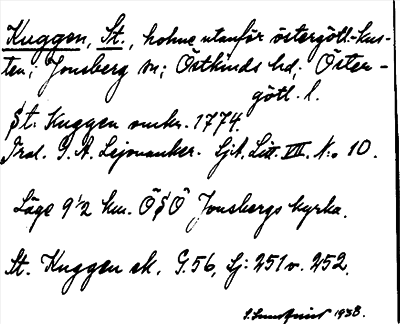 Kuggen, St., holme utanför östergötl.-kus-
ten; Jonsberg sn; Östkinds hd; Öster-
götl. l.
St. Kuggen omkr. 1774.
Trol. G. A. Lejonanker. Sjk. Litt. VII. N:o 10.
Läge 9½ km. ÖSÖ Jonsbergs kyrka.
St. Kuggen ek. G.56, Sj: 251 v. 252.
1938.